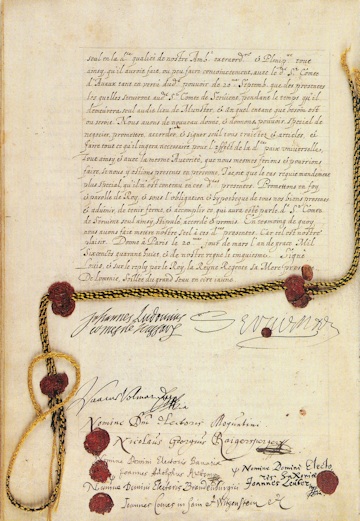 seul en la d.te qualité de nostre Amb.r extraord.re et Plenip.re tout
ainsy qu'il auroit fait, ou peu faire conjoinctement avec le d.t S.r Comte
d'Avaux tant en vertu dud. pouvoir de 20.e Septemb. que des presentes
les quelles serviront aud. S.r Comte de Servient, pendant le temps qu'il
demeurera seul audit lieu de Munster, et
ou seroit. Nous avons de nouveau donné, et donnons, pouvoir special de
negocier, promettre, accorder, et signer seul tous traictez, et articles, et
faire tout ce qu'il jugera necessaire pour l'effet de la d.te paix universelle,
tout ainsy et avec la mesme Auctorité, que nous mesmes ferions et pourrions
faire, si nous y estions presens en personne, Jaçoit que le cas requit mandement
plus special, qu'il n'est contenu en ces d.tes presentes. Promettons en foy,
et parolle de Roy, et soub l'obligation et hypotheque de tous nos biens presents
et advenir, de tenir ferme, et accomplir ce qui aura esté par le d.t S.r Comte
de Servient seul ainsy stipulé, accordé et promis. En tesmoing de quoy
nous avons fait mettre nostre seel à ces d.tes presentes. Car tel est nostre
plaisir. Donné à Paris le 20.me jour de mars l'an de grace Mil
Six cents quarante huict, et de nostre regne le cinquiesme. Signé
Louis, et sur le reply par le Roy, la Reyne Regente Sa Mere presente
De Lomenie, Seellée du grand Seau en cire jaune.
Johannes Ludovicus
comes de Nassau
Servient
Isaacus Volmar
Nomine Dni Electoris Moguntini
Nicolaus Georgius Raigersperger
Nomine Domini Electoris Bavariæ
Joannes Adolphus Krebs
Nomine Domini Electo
ris Saxoniæ
Joannes Leuber
Nomine Domini Electoris Brandeburgici
Joannes Comes in Sain et Witgenstein